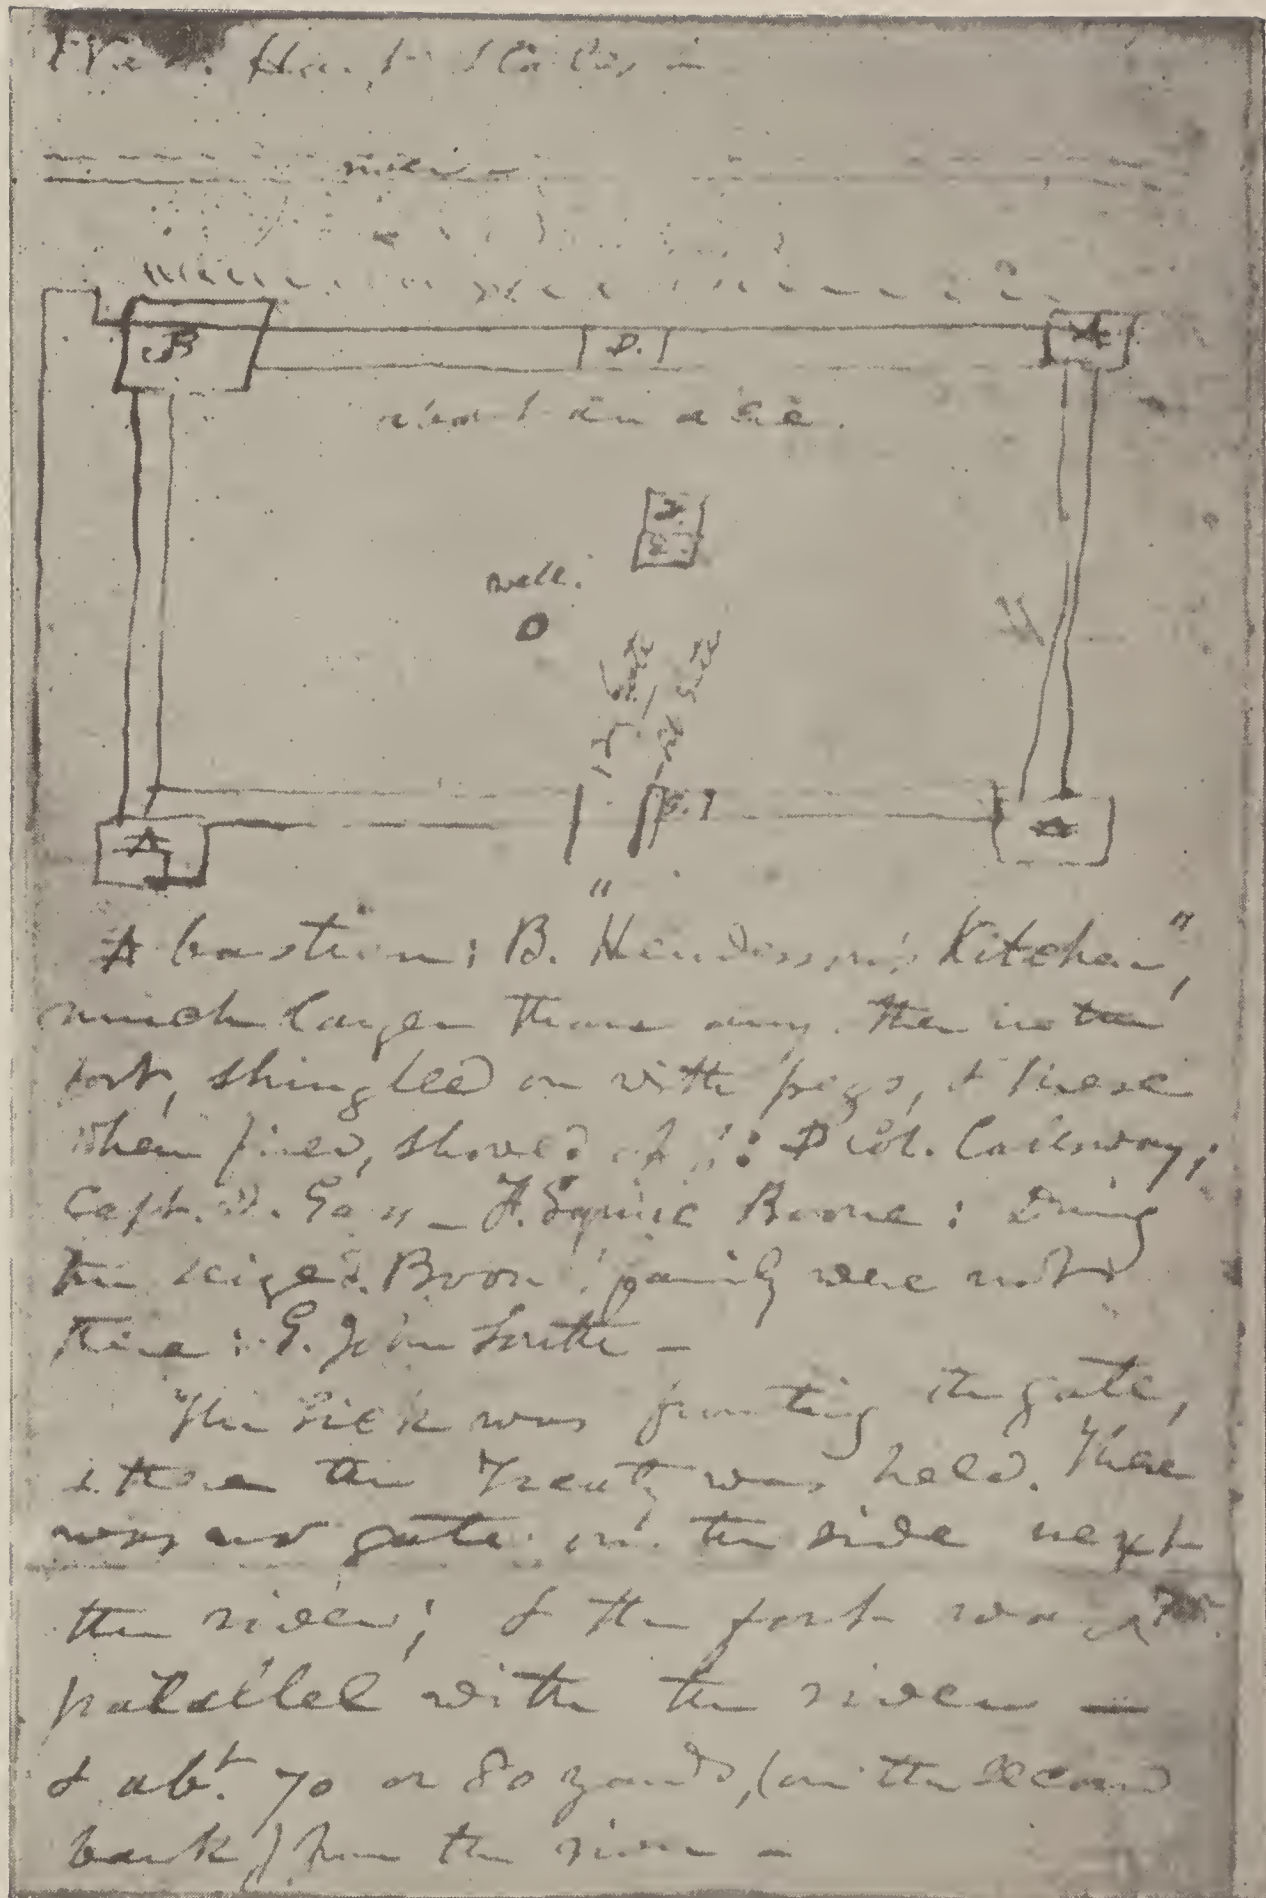 river
B
D.
A
about an acre.
well.
O
A
G.
A
A bastion; B. "Henderson's Kitchen",
much larger than any other in the
fort, shingled on with pegs, & these
when fired, shoved off: D Col. Calloway;
Capt. D. Gass — F. Squire Boone: During
the seige D. Boon's family were not
there: G. John South —
The Lick was fronting the gate,
& there the Treaty was held. There
was no gate on the side next
the river; & the fort was
parallel with the river —
& abt. 70 or 80 yards, (on the second
bank) from the river —